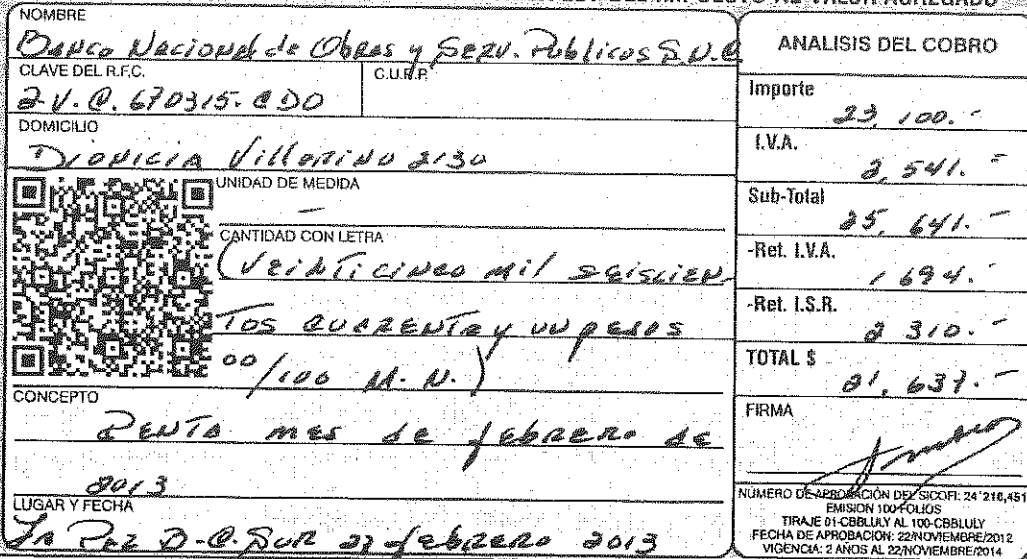 NOMBRE
Banco Nacional de Obras y Serv. Publicos S.N.C
CLAVE DEL R.F.C. C.U.R.P.
670315-
DOMICILIO
Dionicia Villarino 2130
UNIDAD DE MEDIDA
-
CANTIDAD CON LETRA
(Veinticinco mil seiscien-
tos cuarenta y un pesos
00/100 M.N.)
CONCEPTO
Renta mes de febrero de
2013
LUGAR Y FECHA
La Paz B.C.Sur 27 febrero 2013
ANALISIS DEL COBRO
Importe
23,100.-
I.V.A.
2,541.-
Sub-Total
25,641.-
-Ret. I.V.A.
1694.-
-Ret. I.S.R.
2310.-
TOTAL $
21,637.-
FIRMA
NÚMERO DE APROBACIÓN DEL SICOFI: 24'216,451
EMISION 100 FOLIOS
TIRAJE 01-CBBLULY AL 100-CBBLULY
FECHA DE APROBACION: 22/NOVIEMBRE/2012
VIGENCIA: 2 AÑOS AL 22/NOVIEMBRE/2014